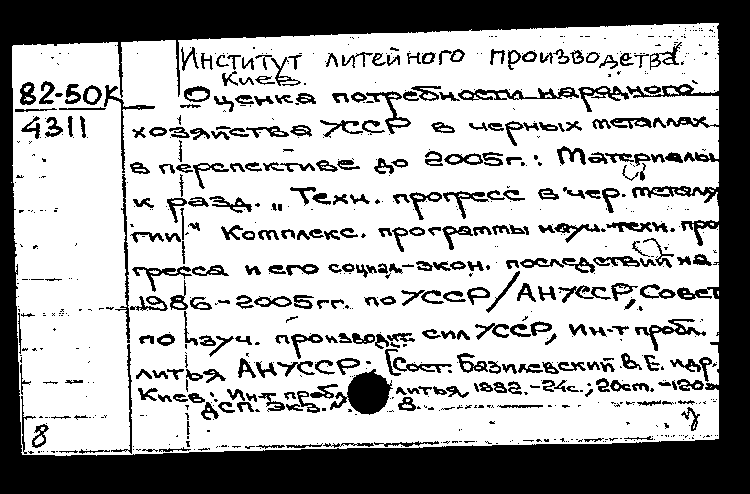 Институт литейного производства.
Киев.
82-50К
4311
Оценка потребности народного
хозяйства УССР в черных металлах
в перспективе до 2005г.: Материалы
к разд. „Техн. прогресс в чер. металлур
гии" Комплекс. программы науч.-техн. про
гресса и его социал.-экон. последствий на
1986-2005гг. по УССР/АН УССР, Совет
по изуч. производит. сил УССР, Ин-т пробл.
литья АН УССР; [Сост. Базилевский В.Е. и др.
Киев: Ин-т пробл литья, 1982.-24с.; 20см. -120э
ДСП. Экз. № 8.
8